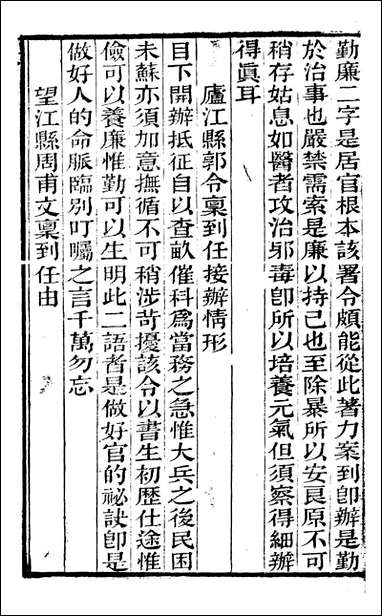 勤廉二字是居官根本該署令頗能從此著力案到卽辦是勤
於治事也嚴禁需索是廉以持己也至除暴所以安良原不可
稍存姑息如醫者攻治邪毒卽所以培養元氣但須察得細辦
得眞耳
廬江縣郭令稟到任接辦情形
目下開辦抵征自以查畝催科爲當務之急惟大兵之後民困
未蘇亦須加意撫循不可稍涉苛擾該令以書生初歷仕途惟
儉可以養廉惟勤可以生明此二語者是做好官的祕訣卽是
做好人的命脈臨別叮囑之言千萬勿忘
望江縣周甫文稟到任由